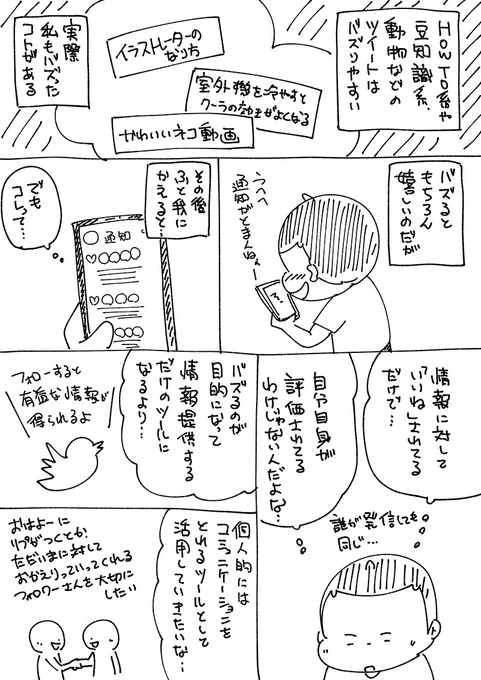 HOWTO系や
豆知識系、
動物などの
ツイートは
バズりやすい
イラストレーターの
なり方
室外機を冷やすと
クーラの効きがよくなる
かわいいネコ動画
実際
私もバズった
コトがある
バズると
もちろん
嬉しいのだが
うへへ
通知がとまんねぇー
その後
ふと我に
かえると…
でも
コレって…
通知
情報に対して
「いいね」されてる
だけで…
自分自身が
評価されてる
わけじゃないんだよな…
誰が発信しても
同じ…
バズるのが
目的になって
情報提供する
だけのツールに
なるより…
フォローすると
有益な情報が
得られるよ
個人的には
コミュニケーションを
とれるツールとして
活用していきたいな…
おはよーに
リプがつくとか
ただいまに対して
おかえりっていってくれる
フォロワーさんを大切に
したい